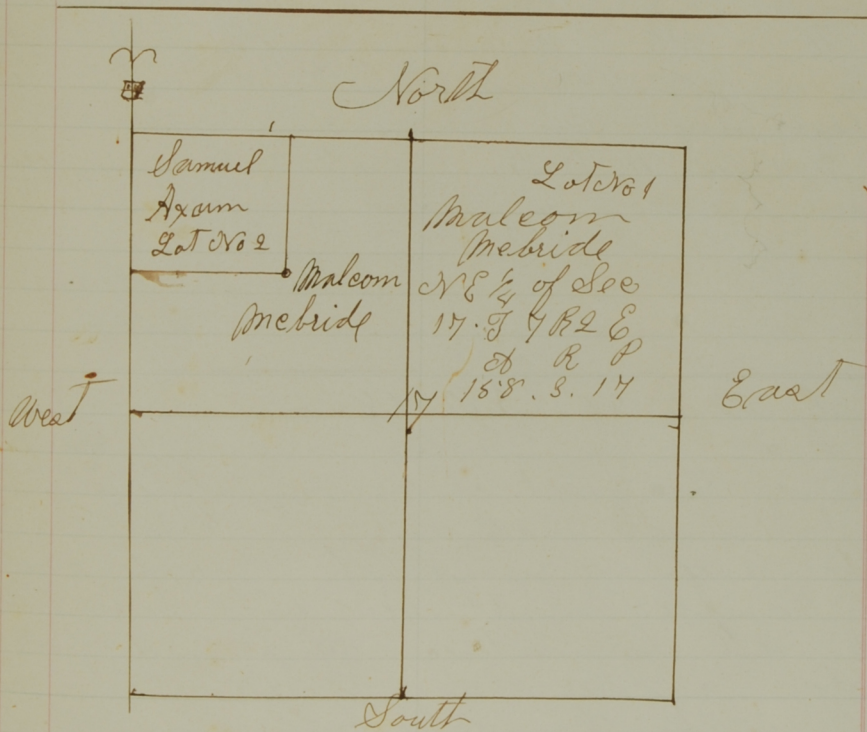 North
Samuel
Axam
Lot No 2
Malcom
Mcbride
Lot No 1
Malcom
Mcbride
N E 1/4 of Sec
17. T 7 R 2 E
A R P
158. 3. 17
West
17
East
South